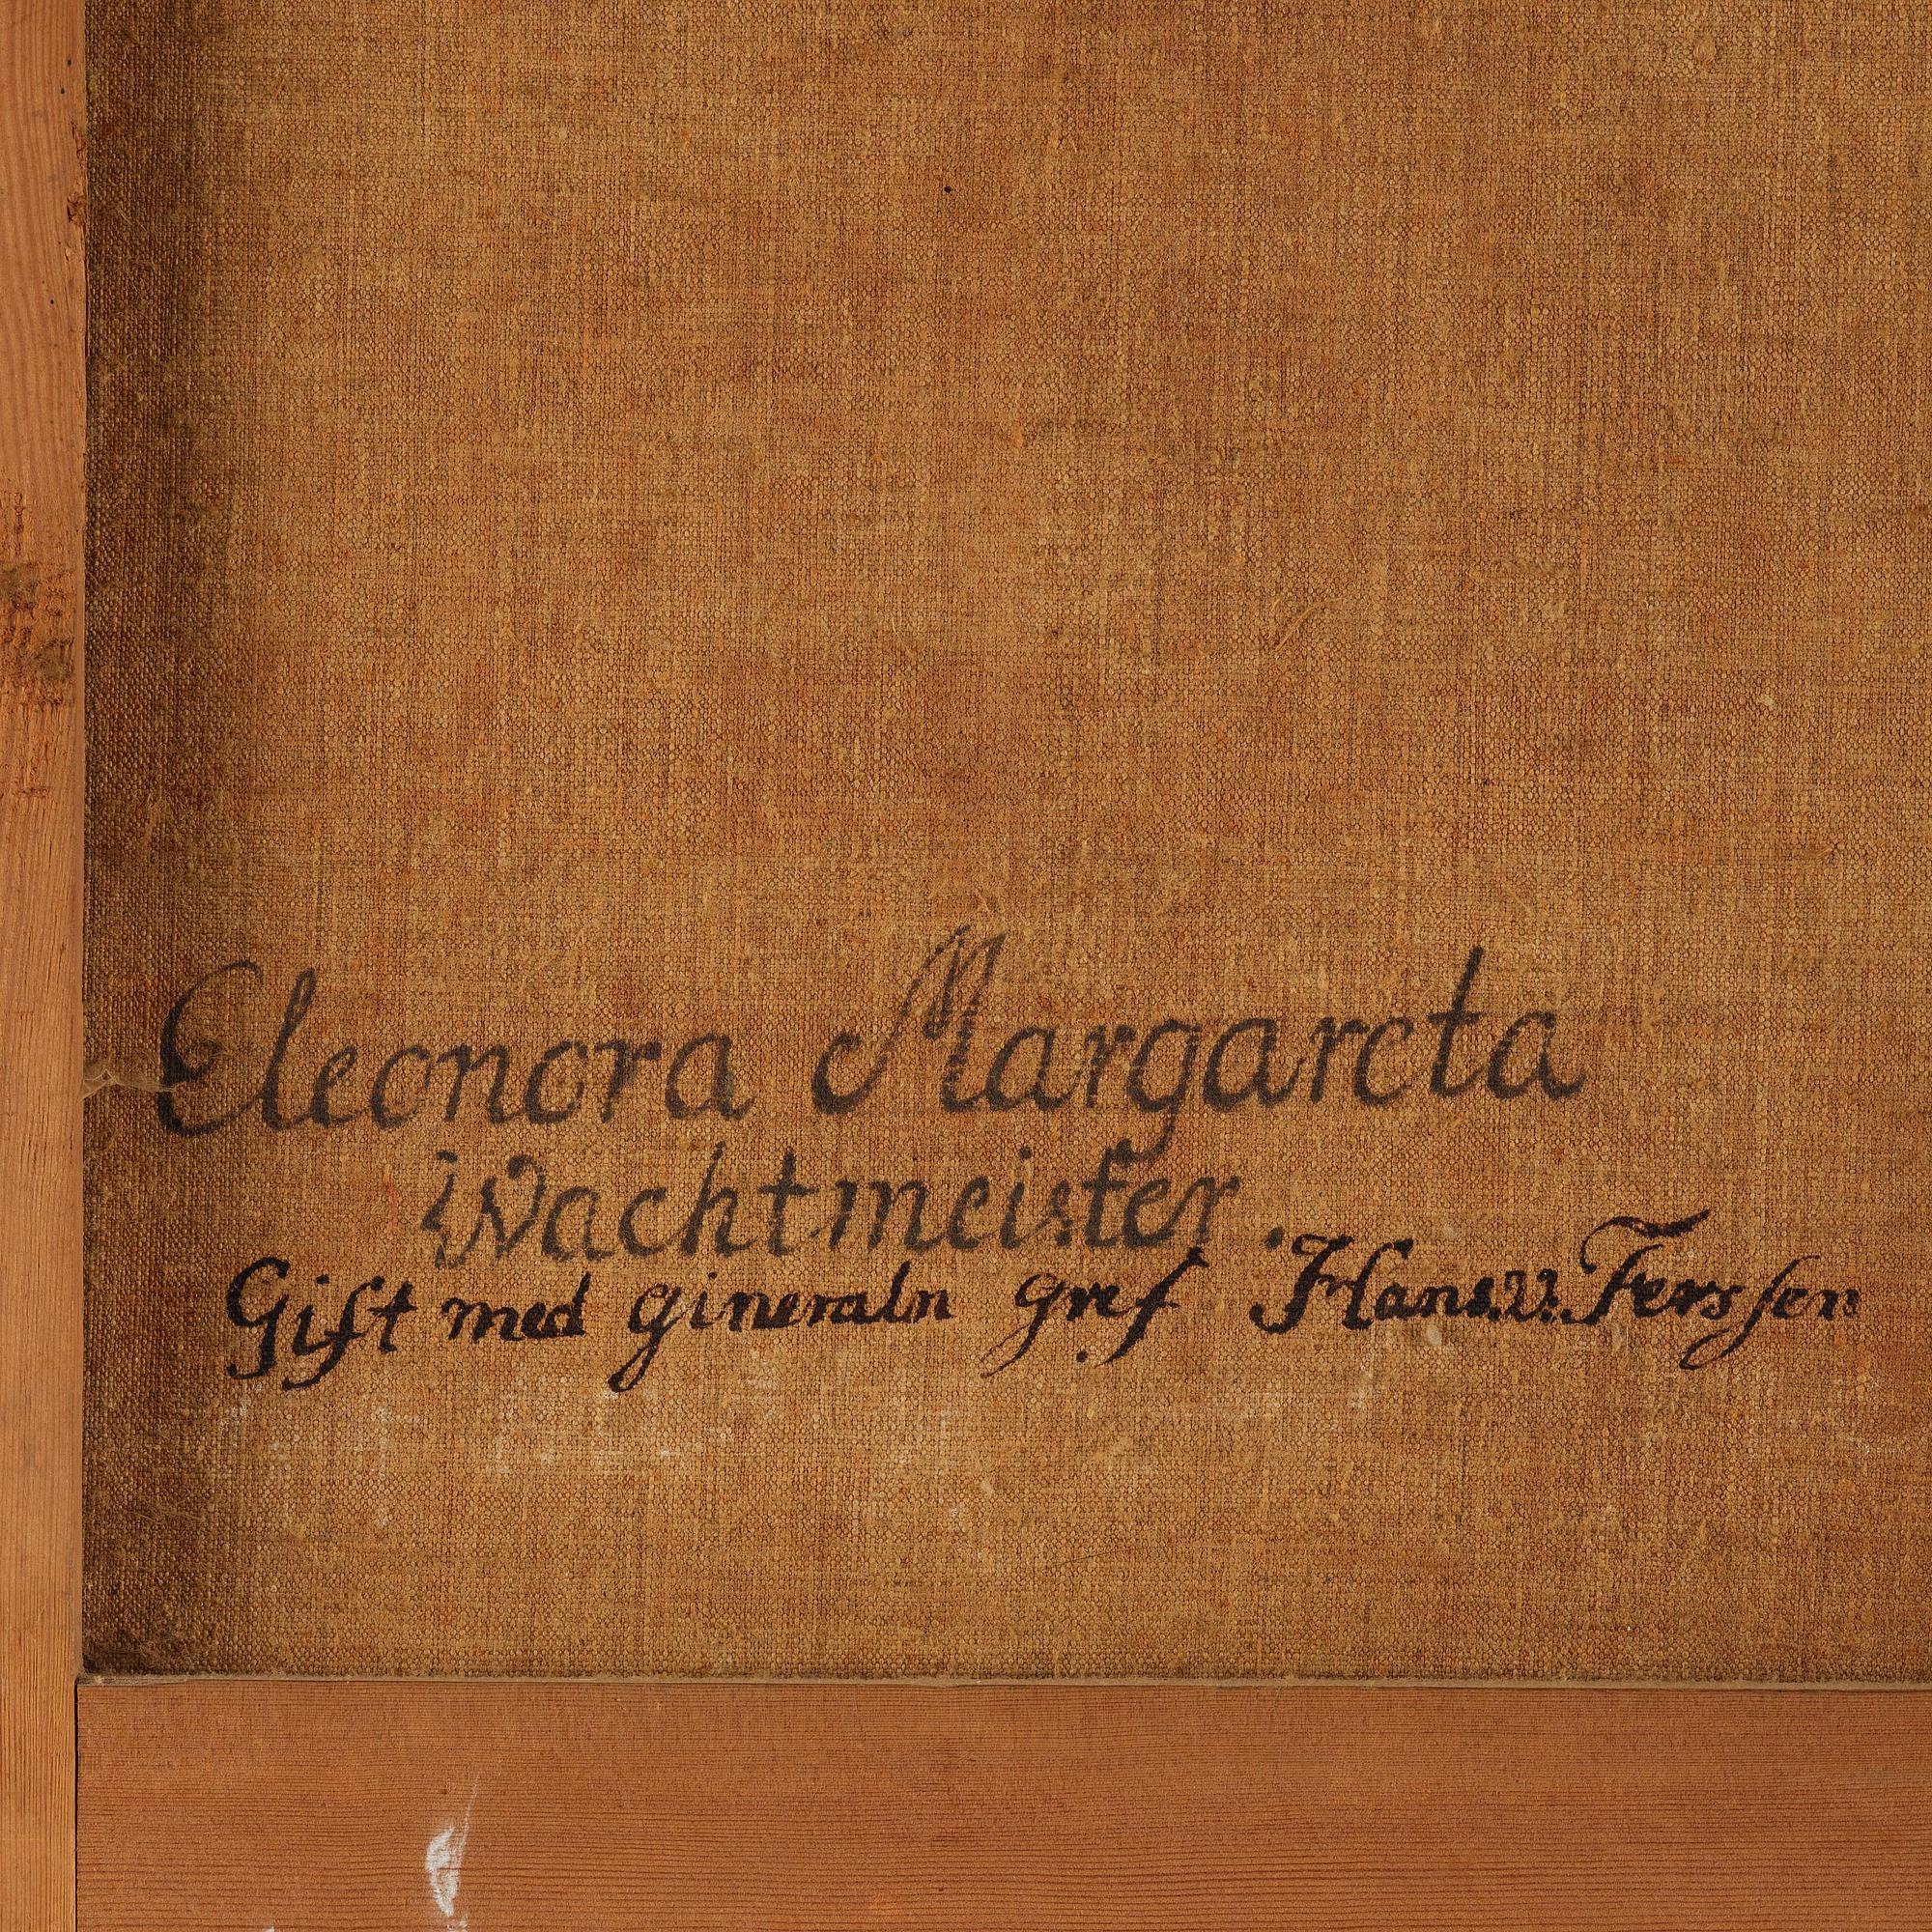 Eleonora Margareta
Wachtmeister.
Gift med gineraln gref Hans.V. Ferssen